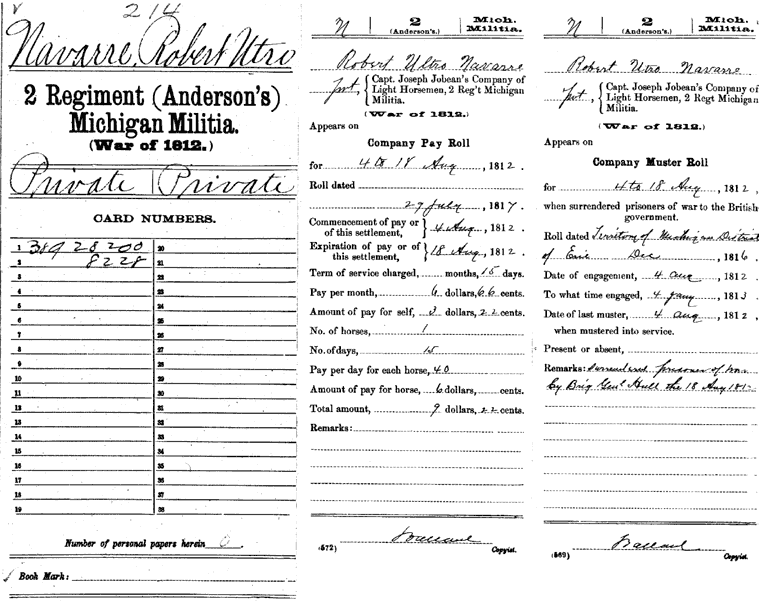 214
Navarre, Robert Utro
2 Regiment (Anderson's)
Michigan Militia.
(War of 1812.)
Private | Private
CARD NUMBERS.
1 38928200 20
2 8228 21
3 22
4 23
5 24
6 25
7 26
8 27
9 28
10 29
11 30
12 31
13 32
14 33
15 34
16 35
17 36
18 37
19 38
Number of personal papers herein 0.
Book Mark:
N | 2 (Anderson's) | Mich. Militia.
Robert Ultro Navarre
Pvt, { Capt. Joseph Jobean's Company of
Light Horsemen, 2 Reg't Michigan
Militia.
(War of 1812.)
Appears on
Company Pay Roll
for 4 to 18 Aug, 1812.
Roll dated
27 July, 1817.
Commencement of pay or of this settlement, } 4 Aug, 1812.
Expiration of pay or of this settlement, } 18 Aug, 1812.
Term of service charged, months, 15 days.
Pay per month, 6 dollars, 66 cents.
Amount of pay for self, 3 dollars, 22 cents.
No. of horses, 1
No. of days, 15
Pay per day for each horse, 40
Amount of pay for horse, 6 dollars, cents.
Total amount, 9 dollars, 22 cents.
Remarks:
(572) Copyist.
N | 2 (Anderson's) | Mich. Militia.
Robert Utro Navarre
Pvt, { Capt. Joseph Jobean's Company of
Light Horsemen, 2 Regt Michigan
Militia.
(War of 1812.)
Appears on
Company Muster Roll
for 4 to 18 Aug, 1812,
when surrendered prisoners of war to the British
government.
Roll dated Territory of Michigan District
of Erie Dec, 1816.
Date of engagement, 4 Aug, 1812.
To what time engaged, 4 Jany, 1813.
Date of last muster, 4 Aug, 1812,
when mustered into service.
Present or absent,
Remarks: Surrendered prisoner of war
by Brig Genl Hull the 18 Aug 181
(569) Copyist.